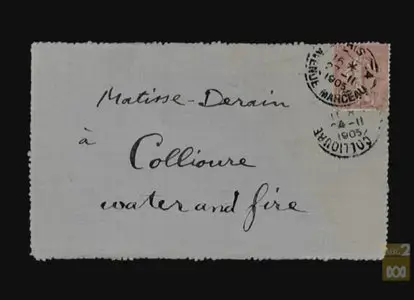 PARIS
15 *
2-11
1905
AVENUE MARCEAU
Matisse-Derain
4-11
1905
COLLIOURE
à
Collioure
water and fire
2